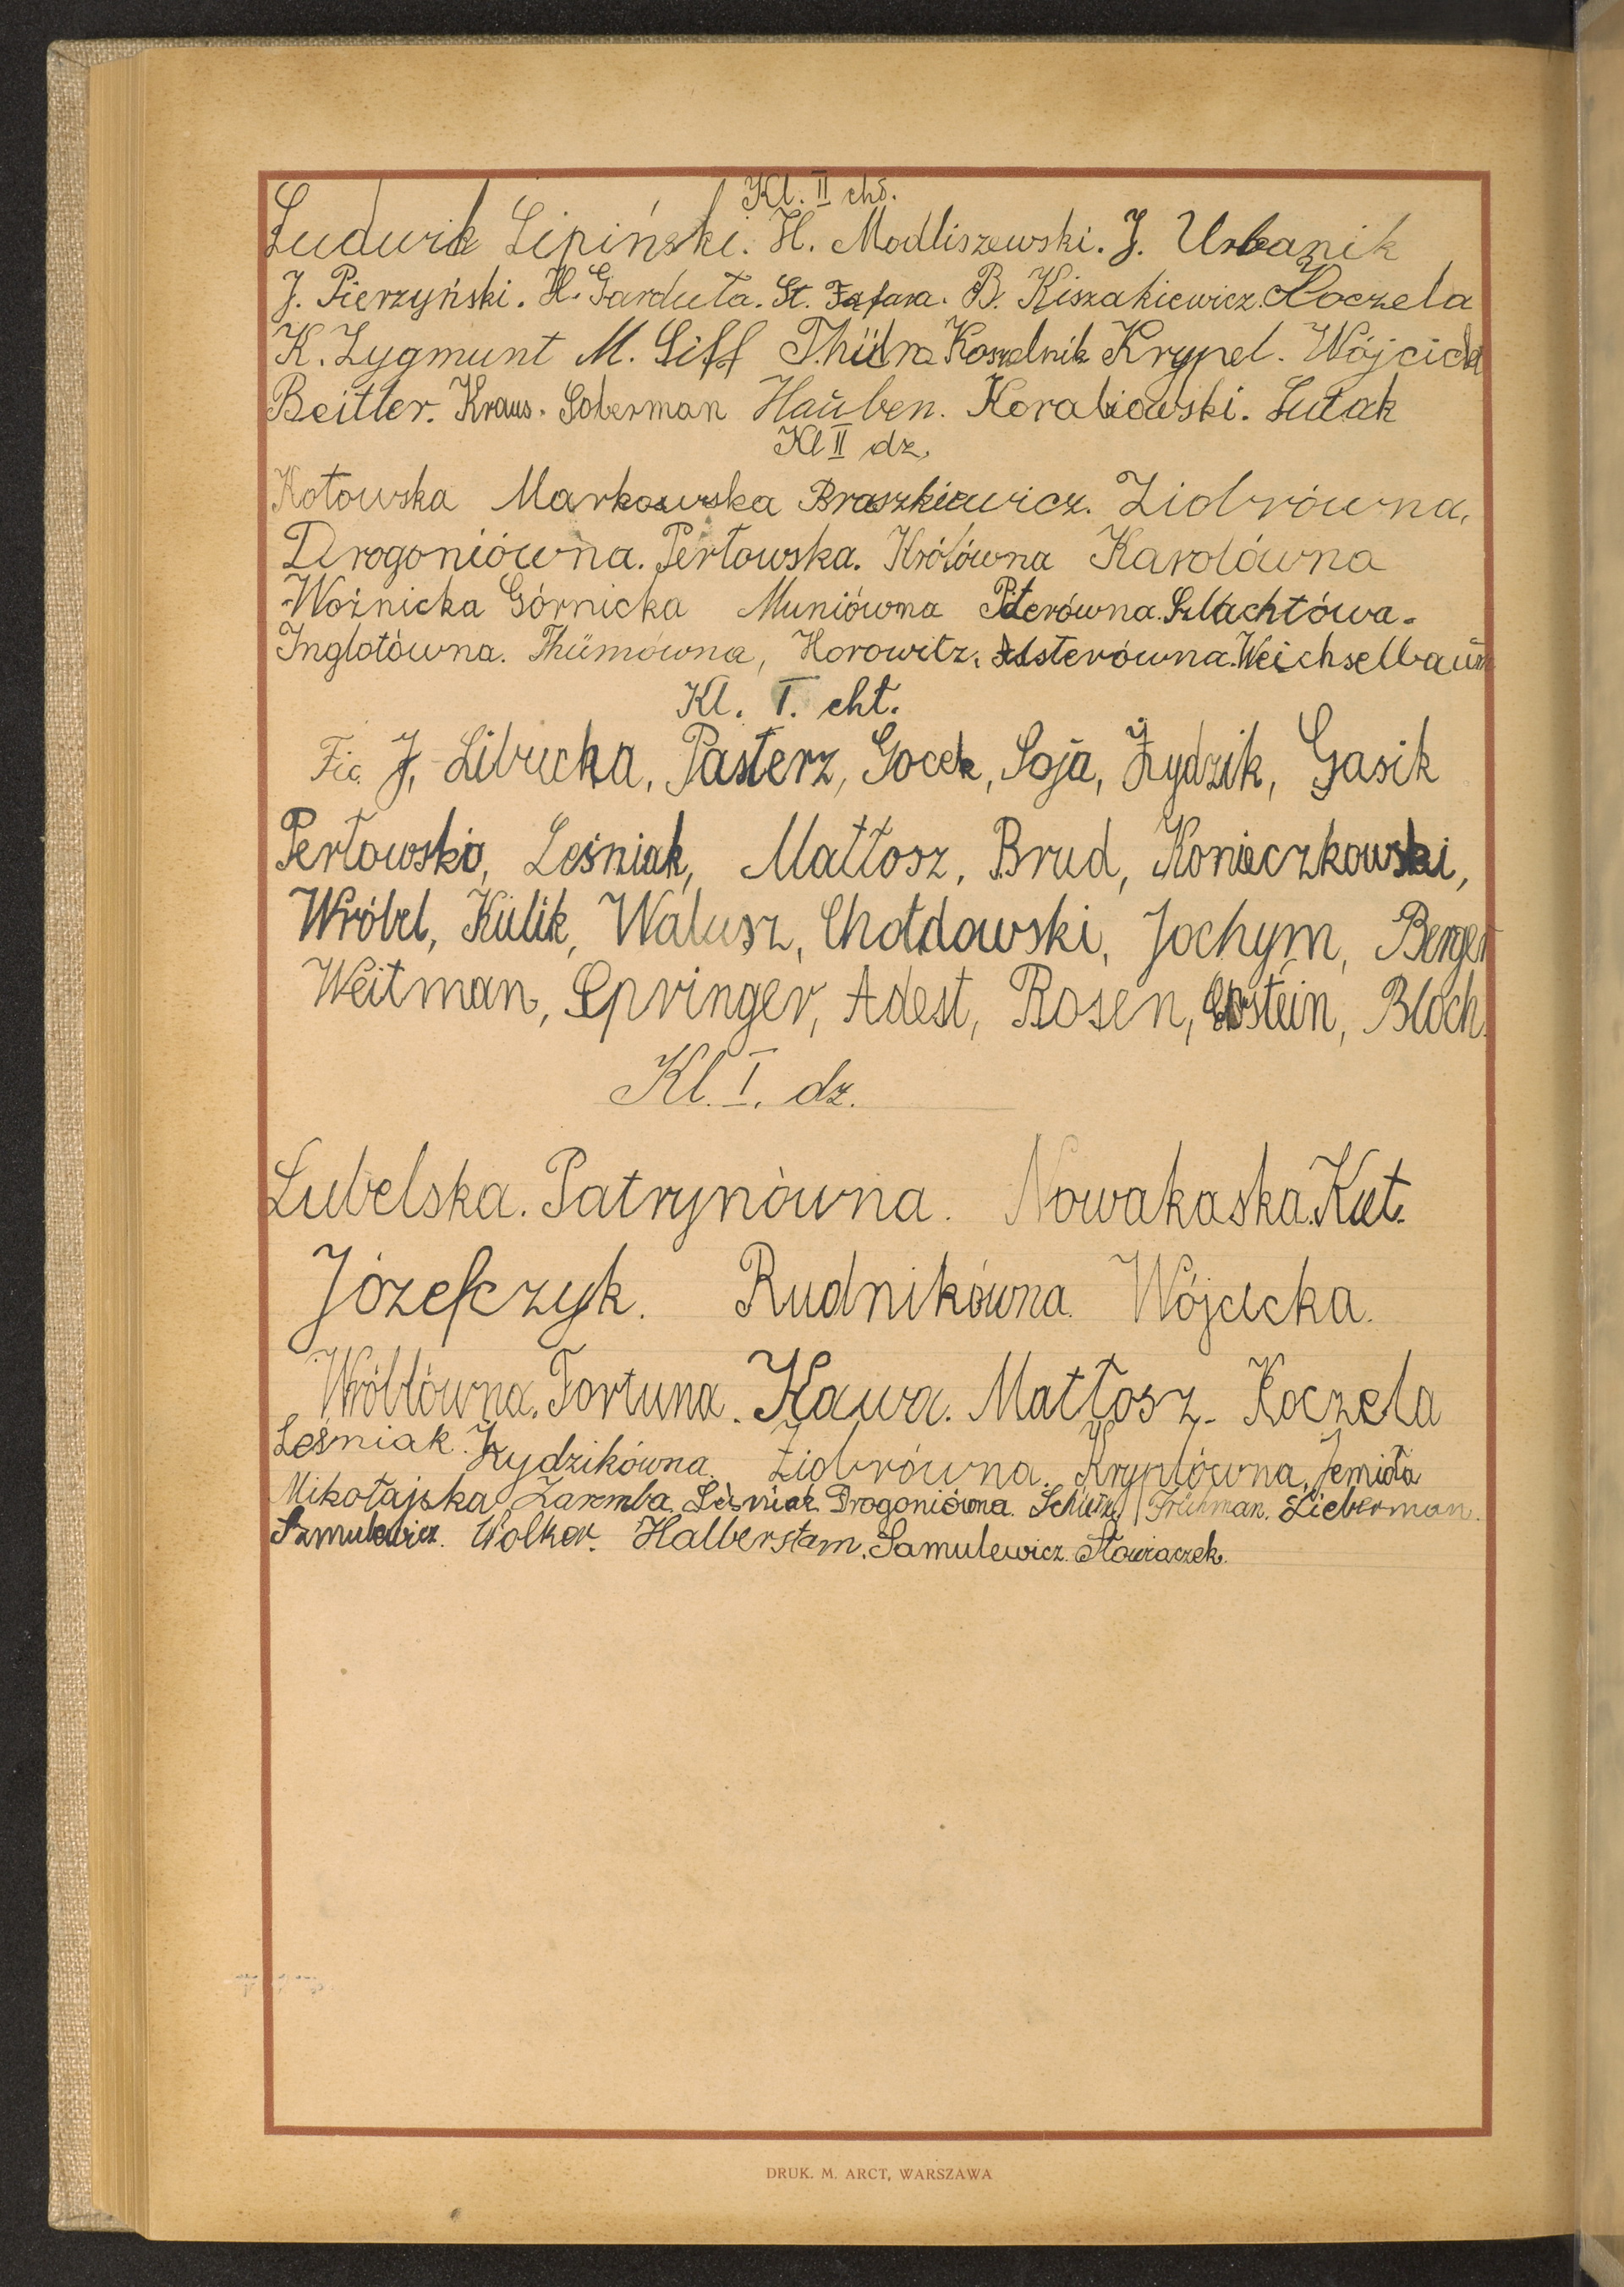 Kl. II chł.
Ludwik Lipiński. H. Modliszewski. J. Urbanik
J. Pierzyński. H. Garduła. St. Fafara. B. Kiszakiewicz. Koczela
K. Zygmunt M. Siff Koszelnik Krypel. Wójcicki
Beitler. Kraus. Soberman Hauben. Korabiowski. Lutak
Kl II dz.
Kotowska Markowska Braszkiewicz. Ziobrówna.
Drogoniówna. Perłowska. Królówna Karolówna
Woźnicka Górnicka Muniówna Piterówna. Szlachtówa.
Inglotówna. Thümówna, Horowitz. Weichselbaum
Kl. I. chł.
Fic. J. Libucha, Pasterz, Gocek, Soja, Zydzik, Gasik
Perłowski, Leśniak, Matłosz, Brud, Konieczkowski,
Wróbel, Kulik, Walusz, Chołdowski, Jochym, Berger
Weitman, Springer, Adest, Rosen, Epstein, Bloch.
Kl. I. dz.
Lubelska. Patrynówna. Nowakaska. Kut.
Józefczyk. Rudnikówna. Wójcicka.
Wróblówna. Fortuna. Kawa. Matłosz. Koczela
Leśniak. Zydzikówna. Ziobrówna. Kryplówna. Jemioła
Mikołajska Zaremba Leśniak Drogoniówna. Frühman. Lieberman.
Szmulewicz. Wolker. Halberstam. Samulewicz. Słowiaczek.
DRUK. M. ARCT, WARSZAWA